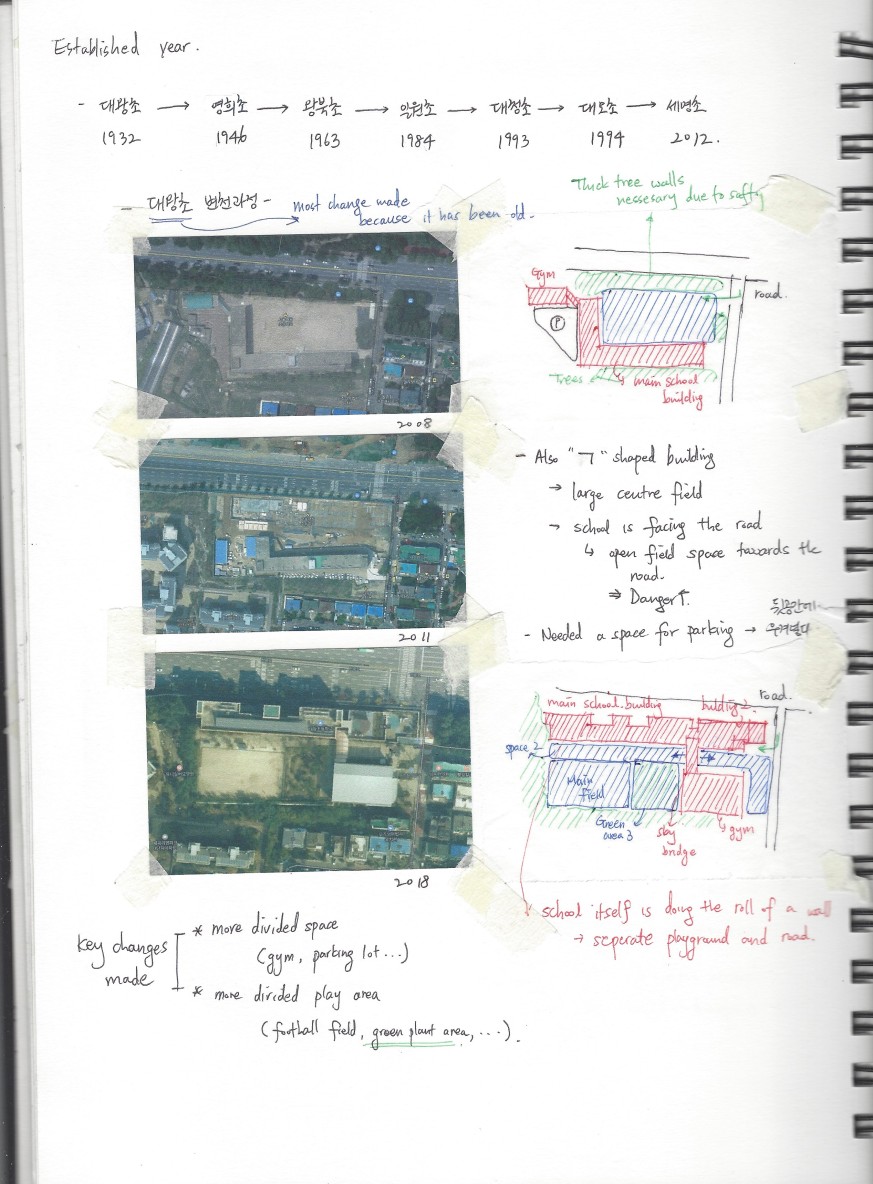 Established year.
- 대왕초 → 영희초 → 왕북초 → 일원초 → 대청초 → 대모초 → 세명초
1932 1946 1963 1984 1993 1994 2012.
- 대왕초 변천과정 -
most change made
because it has been old.
2008
2011
2018
Thick tree walls
nessesary due to safty
Gym
road.
P
Trees
main school
building
- Also "ㄱ" shaped building
→ large centre field
→ school is facing the road
↳ open field space towards the
road.
⇒ Danger↑.
- Needed a space for parking →
road.
main school building
building 2
space 2
Main
field
Green
area 3
sky
bridge
gym
school itself is doing the roll of a wall
→ seperate playground and road.
Key changes
made
* more divided space
(gym, parking lot...)
* more divided play area
(football field, green plant area, ...).